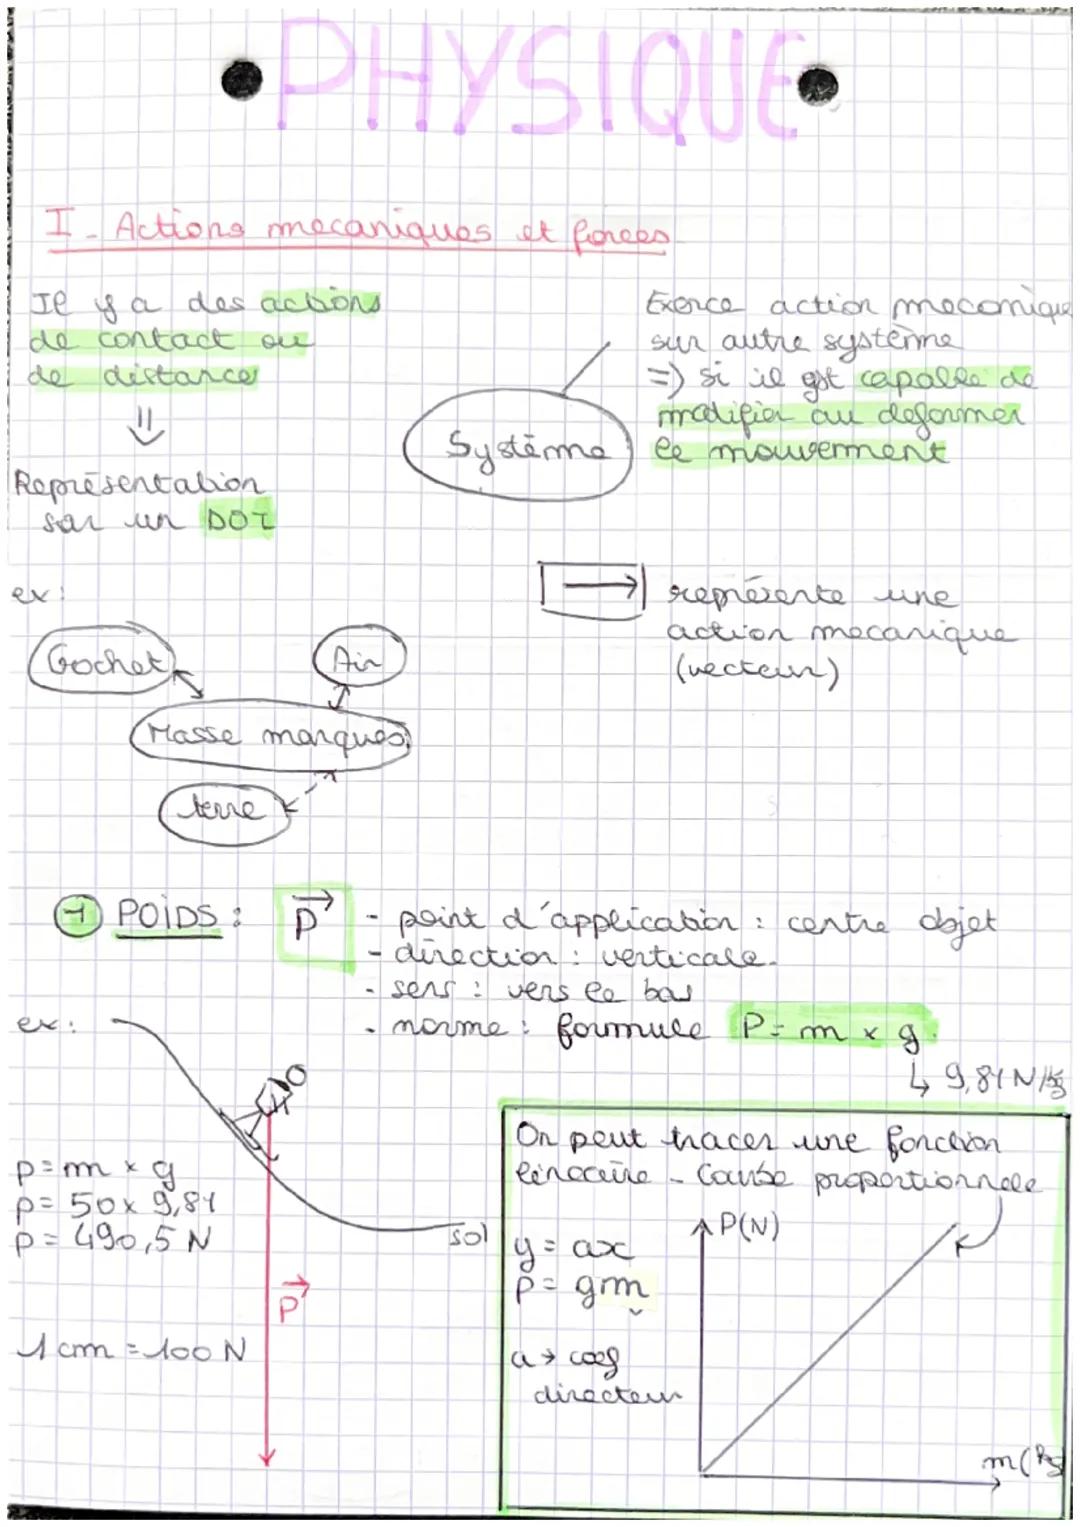 PHYSIQUE
I - Actions mecaniques et forces
Il y a des actions
de contact ou
de distances
Représentation
sur un DOI
Système
Exerce action mecanique
sur autre système
=> si il est capable de
modifier ou deformer
le mouvement
→ représente une
action mecanique
(vecteur)
ex:
Crochet
Air
Masse marquées
terre
1 POIDS :
P
- point d'application : centre objet
- direction : verticale.
- sens : vers le bas
- norme : formule P = m x g.
↳ 9,81 N/kg
ex :
p = m x g
p = 50 x 9,81
p = 490,5 N
1 cm = 100 N
P
sol
On peut tracer une fonction
lineaire - Courbe proportionnele
y = ax
p = gm
a → coef
directeur
P(N)
m(kg